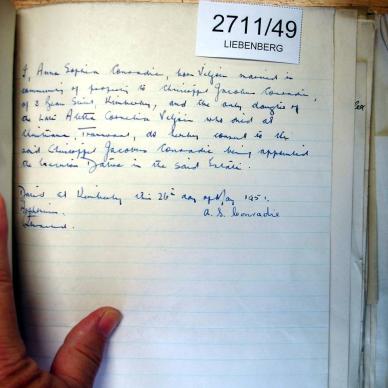 2711/49
LIEBENBERG
I, Anna Sophia Conradie, born Viljoen married in
community of property to Christoffel Jacobus Conradie,
of 2 Street, Kimberley, and the only daughter of
the late Aletta Cornelia Viljoen who died at
Christiana Transvaal, do hereby consent to the
said Christoffel Jacobus Conradie being appointed
the Executor Dative in the said Estate.
Dated at Kimberley this 26th day of May 195
A. S. Conradie